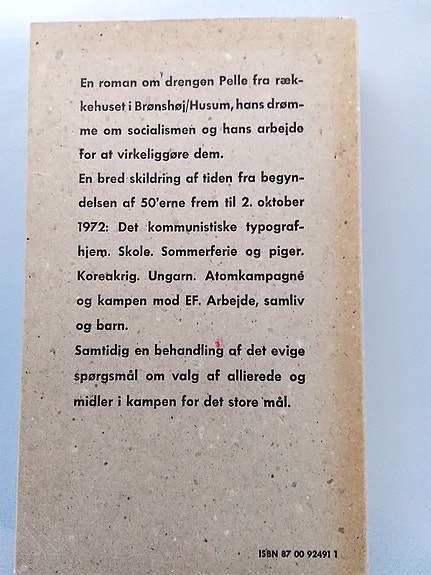 En roman om drengen Pelle fra ræk-
kehuset i Brønshøj/Husum, hans drøm-
me om socialismen og hans arbejde
for at virkeliggøre dem.
En bred skildring af tiden fra begyn-
delsen af 50'erne frem til 2. oktober
1972: Det kommunistiske typograf-
hjem. Skole. Sommerferie og piger.
Koreakrig. Ungarn. Atomkampagne
og kampen mod EF. Arbejde, samliv
og barn.
Samtidig en behandling af det evige
spørgsmål om valg af allierede og
midler i kampen for det store mål.
ISBN 87 00 92491 1